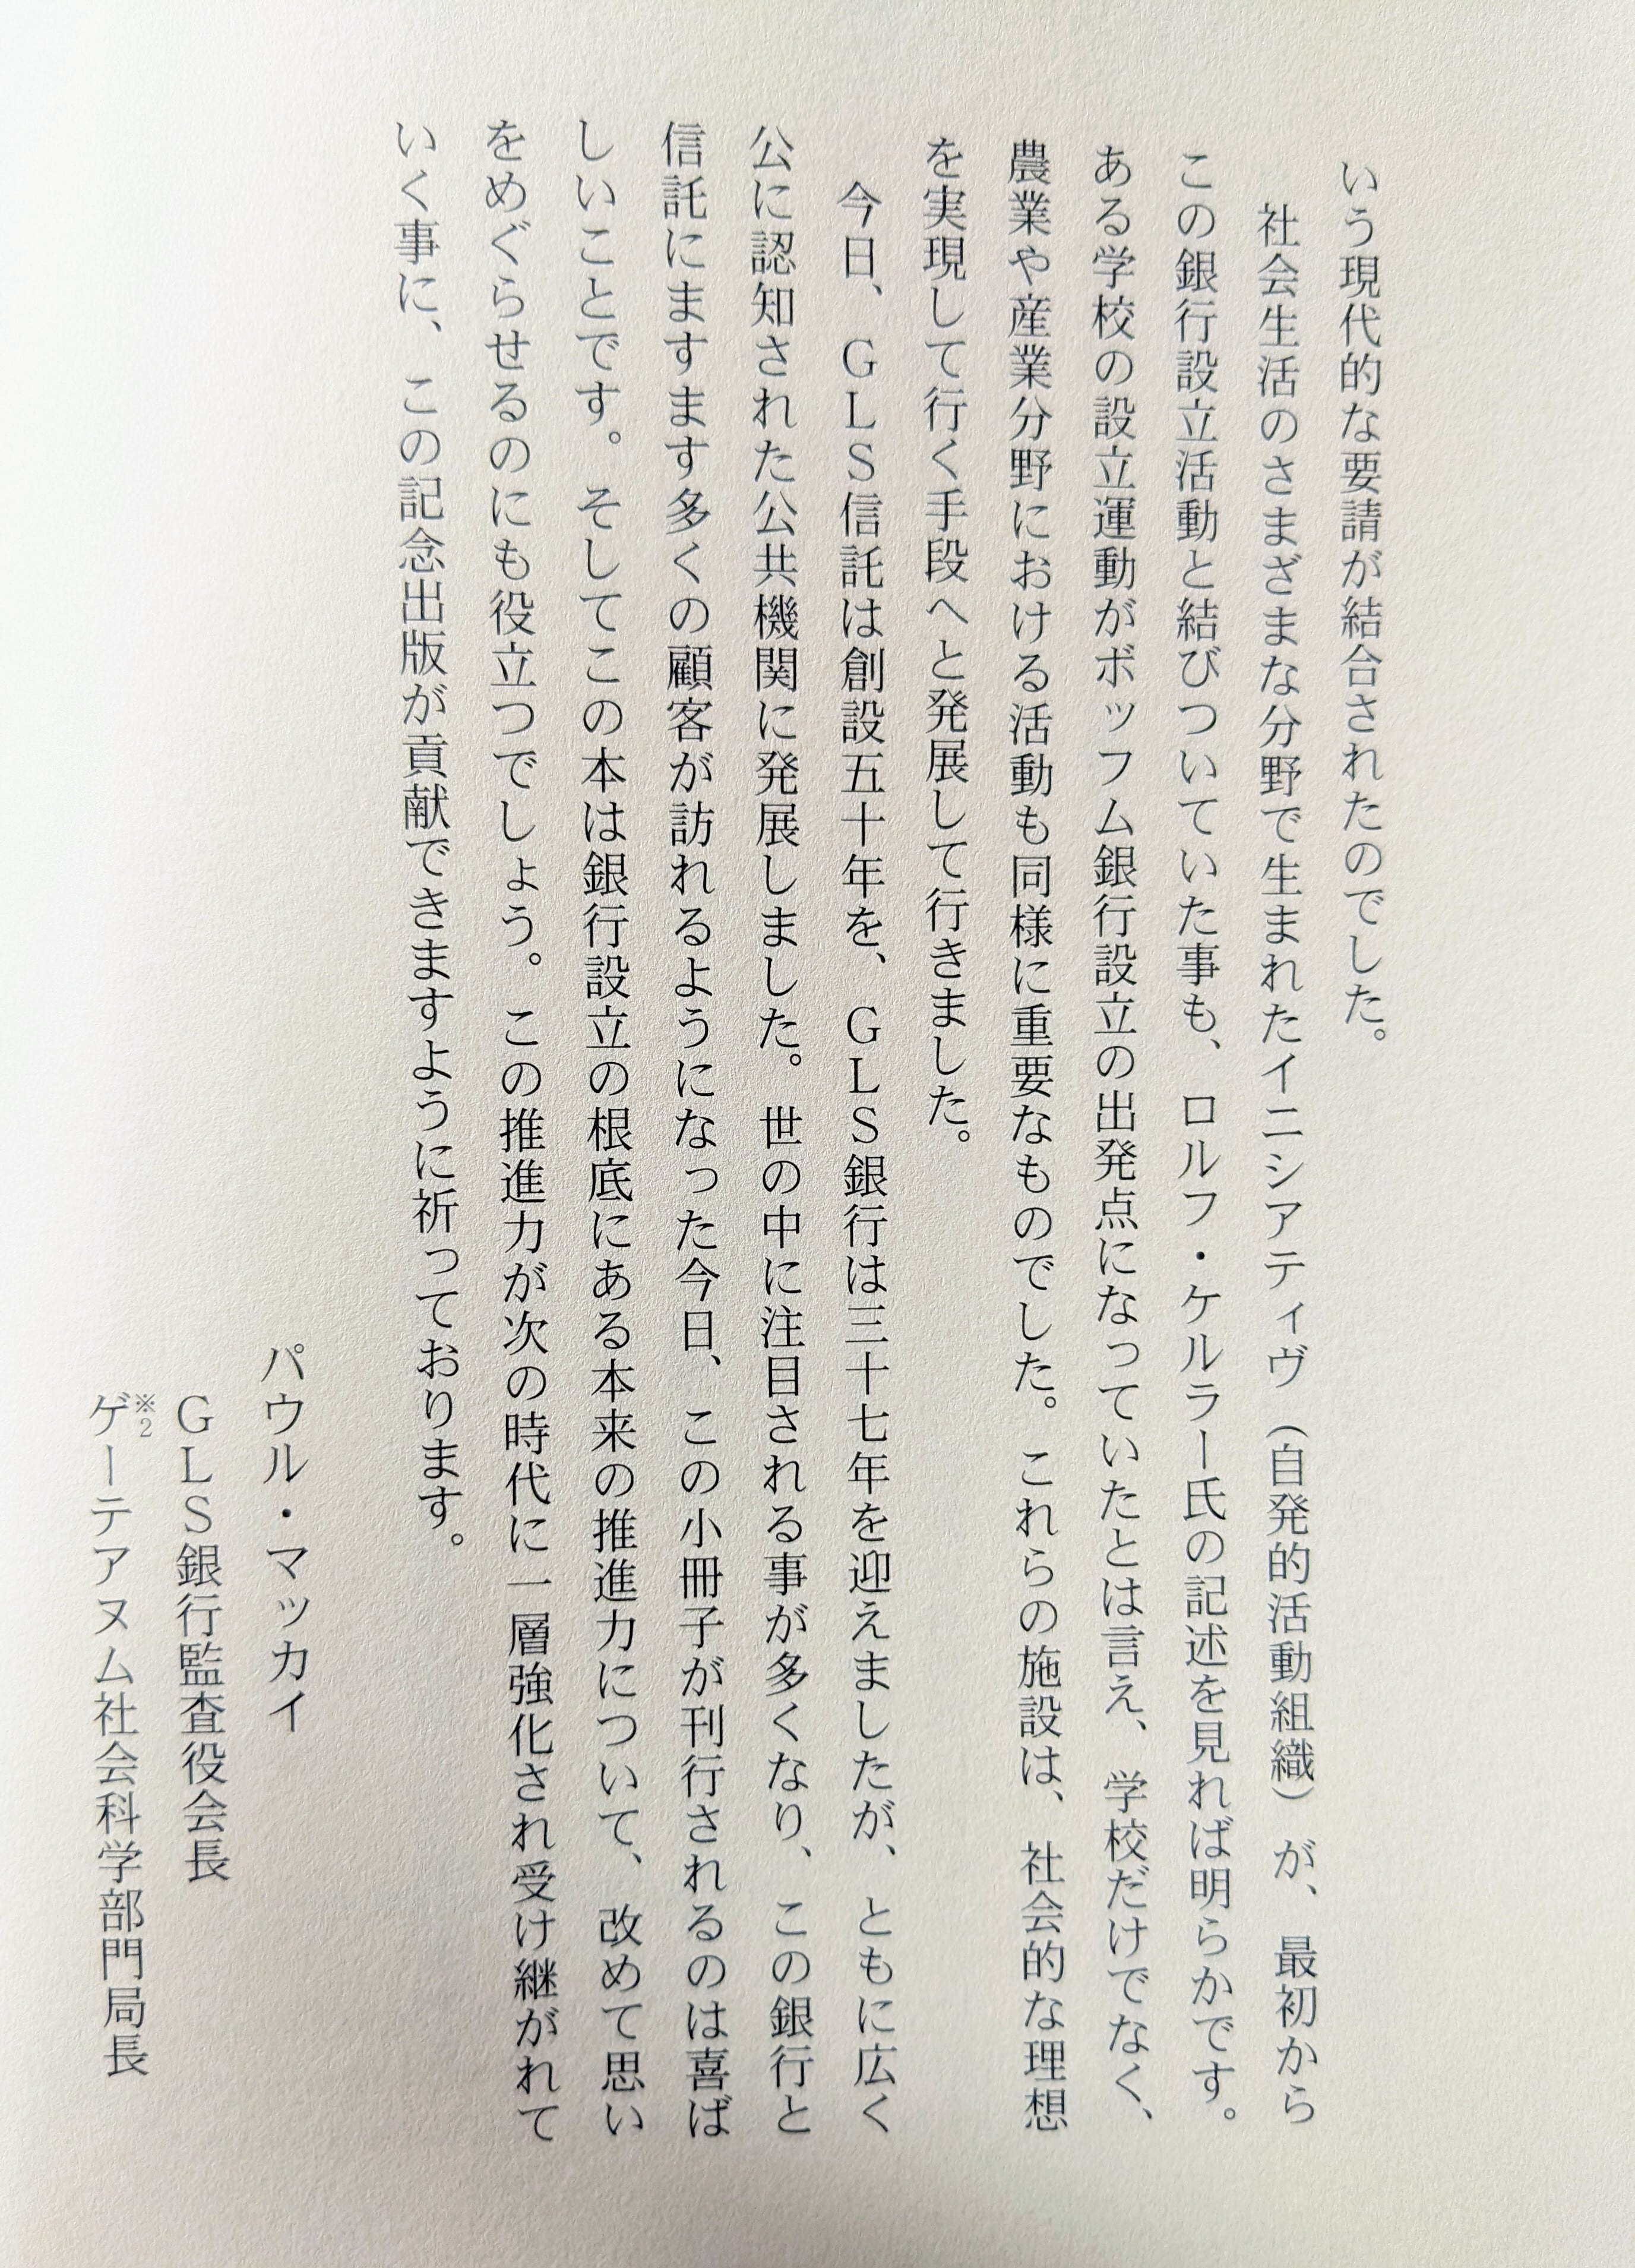 いう現代的な要請が結合されたのでした。
社会生活のさまざまな分野で生まれたイニシアティヴ（自発的活動組織）が、最初から
この銀行設立活動と結びついていた事も、ロルフ・ケルラー氏の記述を見れば明らかです。
ある学校の設立運動がボッフム銀行設立の出発点になっていたとは言え、学校だけでなく、
農業や産業分野における活動も同様に重要なものでした。これらの施設は、社会的な理想
を実現して行く手段へと発展して行きました。
今日、GLS信託は創設五十年を、GLS銀行は三十七年を迎えましたが、ともに広く
公に認知された公共機関に発展しました。世の中に注目される事が多くなり、この銀行と
信託にますます多くの顧客が訪れるようになった今日、この小冊子が刊行されるのは喜ば
しいことです。そしてこの本は銀行設立の根底にある本来の推進力について、改めて思い
をめぐらせるのにも役立つでしょう。この推進力が次の時代に一層強化され受け継がれて
いく事に、この記念出版が貢献できますように祈っております。
パウル・マッカイ
GLS銀行監査役会長
※2ゲーテアヌム社会科学部門局長